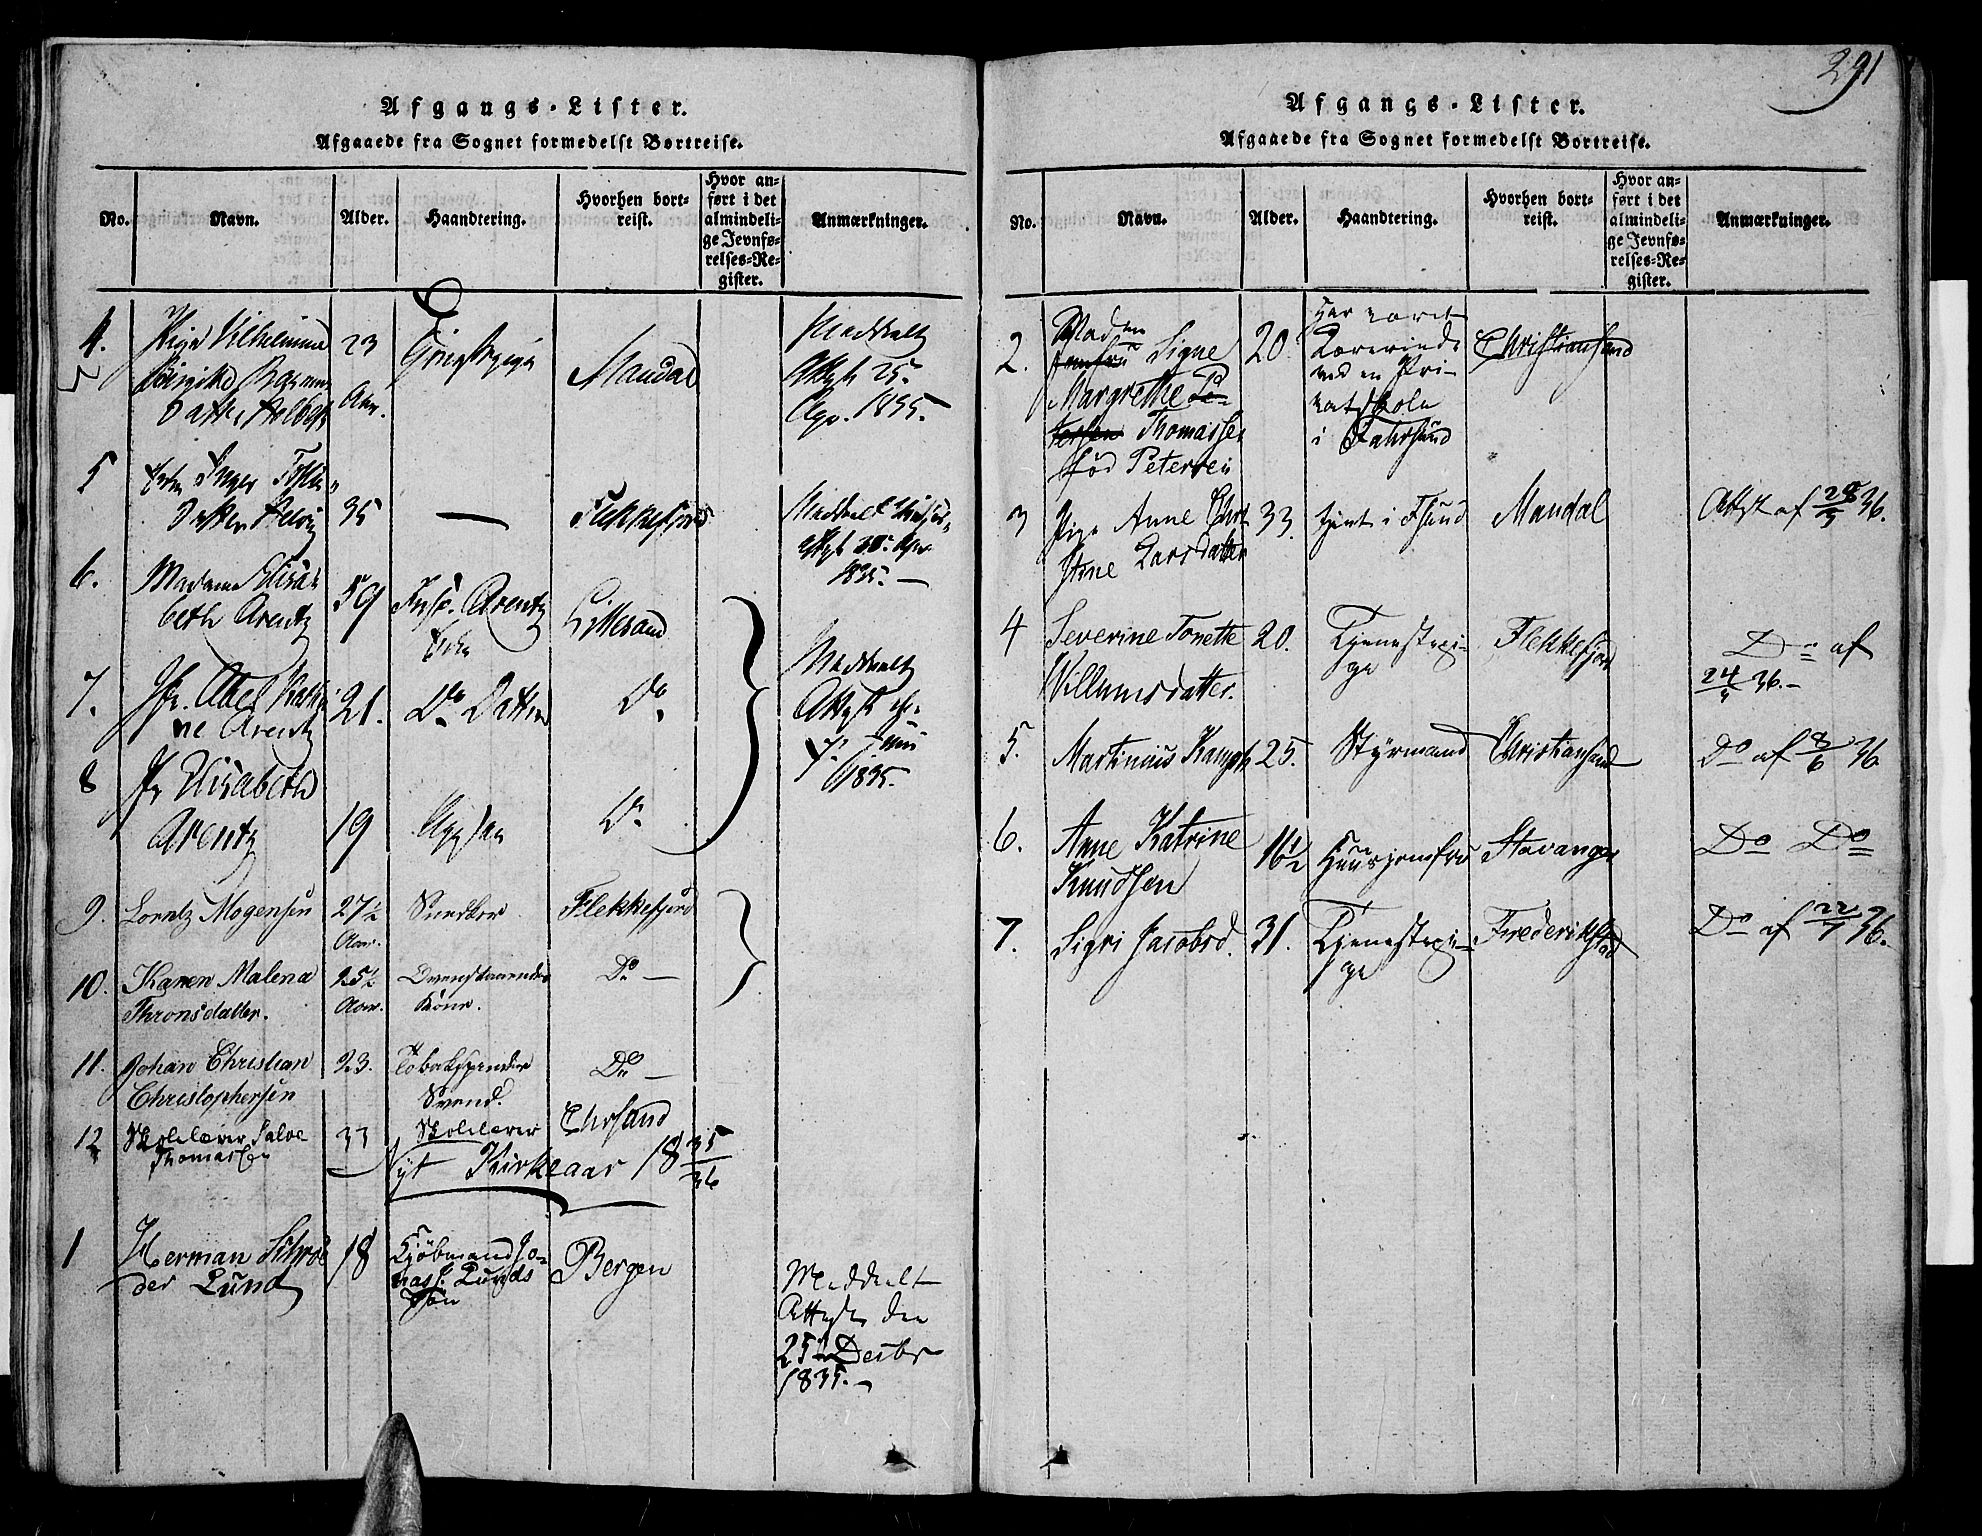 Afgangs-Lister.
Afgaaede fra Sognet formedelst Bortreise.
No. Navn. Alder. Haandtering. Hvorhen bortreist. Hvor anført i det almindelige Jevnførelses-Register. Anmærkninger.
4. Pige Vilhelmine 23 Mandal Meddeelt
Attest 25.
Apr. 1835.
5 Inger 35 — Flekkefjord Meddeelt
1835. —
6. Madame Elisa-
beth Arentz 59 Insp. Arentz Lillesand
7. Jfr. Abel
ne Arentz 21. Do Datter Do Meddeelt
Attest
7. Juni
1835.
8 Jfr Elisabeth
Arentz 19 Do
9. Lorentz Mogensen 27½ Snedker Flekkefjord
Aar.
10. Karen Malena 25½ Ovenstaaendes Do —
Thronsdatter. Aar. Kone.
11. Johan Christian 23. Tobakspinder Do —
Christophersen Svend.
12 Skolelærer Salve 33 Skolelærer Chrsand
Thomassen
Nyt Kirkeaar 18 35/36
1 Herman Schrø- 18 Kjøbmand Jo- Bergen
der Lund nas L. Lunds
Søn
Meddeelt
Attest den
25 Decbr
1835. —
291
Afgangs-Lister.
Afgaaede fra Sognet formedelst Bortreise.
No. Navn. Alder. Haandtering. Hvorhen bortreist. Hvor anført i det almindelige Jevnførelses-Register. Anmærkninger.
2. Madm Jomfru Signe 20. Har været Christiansand
Margrethe Pe- Lærerinde
tersen Thomassen ved en Pri-
fød Petersen vatskole
i Fahrsund
3 Pige Anne Chri 33. tjent i Fsund Mandal Attest af 28/3 36.
stine Larsdatter
4 Severine Tonette 20. Tjenestepi- Flekkefjord Do af
Willumsdatter. ge 24/ 36. —
5. Martinius Kamph 25. Styrmand Christiansand Do af 8/6 36
6. Anne Katrine 16½ Huusjomfru Stavanger Do Do
Knudsen
7. Sigri Jacobsd. 31. Tjenestepi- Frederikstad Do af 22/7 36.
ge